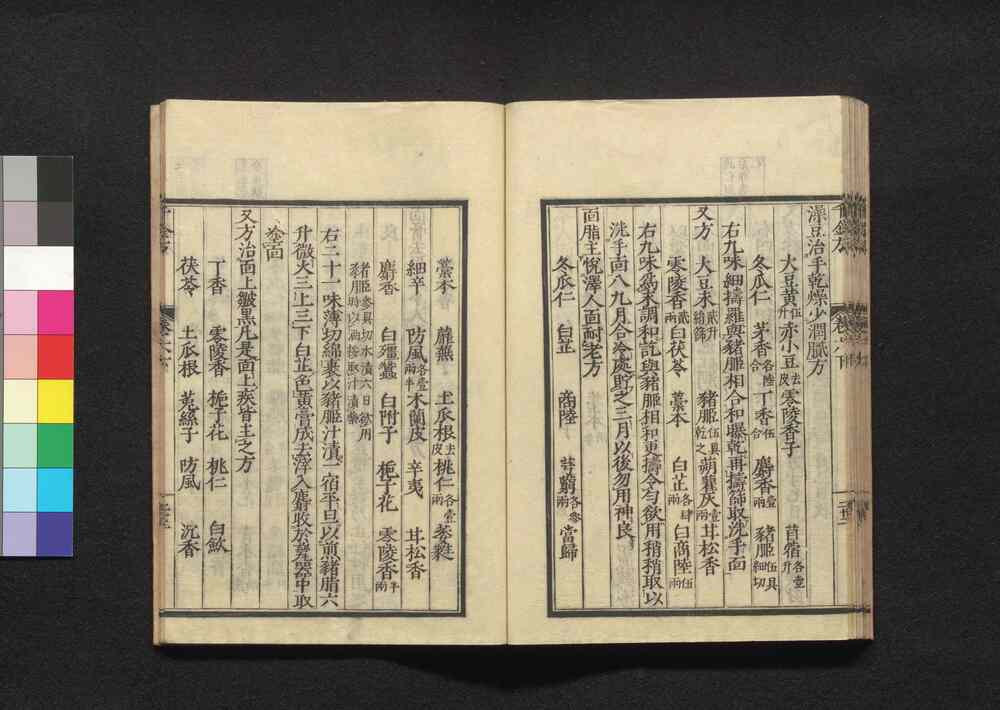 澡豆治手乾燥少潤膩方
大豆黃伍升 赤小豆去皮 零陵香子 苜蓿各壹升
冬瓜仁 茅香各陸合 丁香伍合 麝香壹兩 豬胵伍具細切
右九味細擣羅與豬胵相合和曝乾再擣篩取洗手面
又方 大豆末貳升絹篩 豬胵伍具乾之 蒴藋灰壹兩 甘松香
零陵香貳兩 白茯苓 藁本 白芷各肆兩 白商陸伍兩
右九味爲末調和訖與豬胵相和更擣令勻欲用稍稍取以
洗手面八九月合冷處貯之三月以後勿用神良
面脂主悅澤人面耐老方
冬瓜仁 白芷 商陸 芎藭各參兩 當歸
藁本 蘼蕪 土瓜根去皮 桃仁各壹兩 葳蕤
細辛 防風各壹兩半 木蘭皮 辛夷 甘松香
麝香 白殭蠶 白附子 梔子花 零陵香半兩
豬胵參具切水漬六日欲用豬胵時以㴩挼取汁漬藥
右二十一味薄切綿裹以豬胵汁漬一宿平旦以前豬脂六
升微火三上三下白芷色黃膏成去滓入麝收於甆器中取
塗面
又方治面上皺黑凡是面上疾皆主之方
丁香 零陵香 梔子花 桃仁 白歛
茯苓 土瓜根 菟絲子 防風 沉香